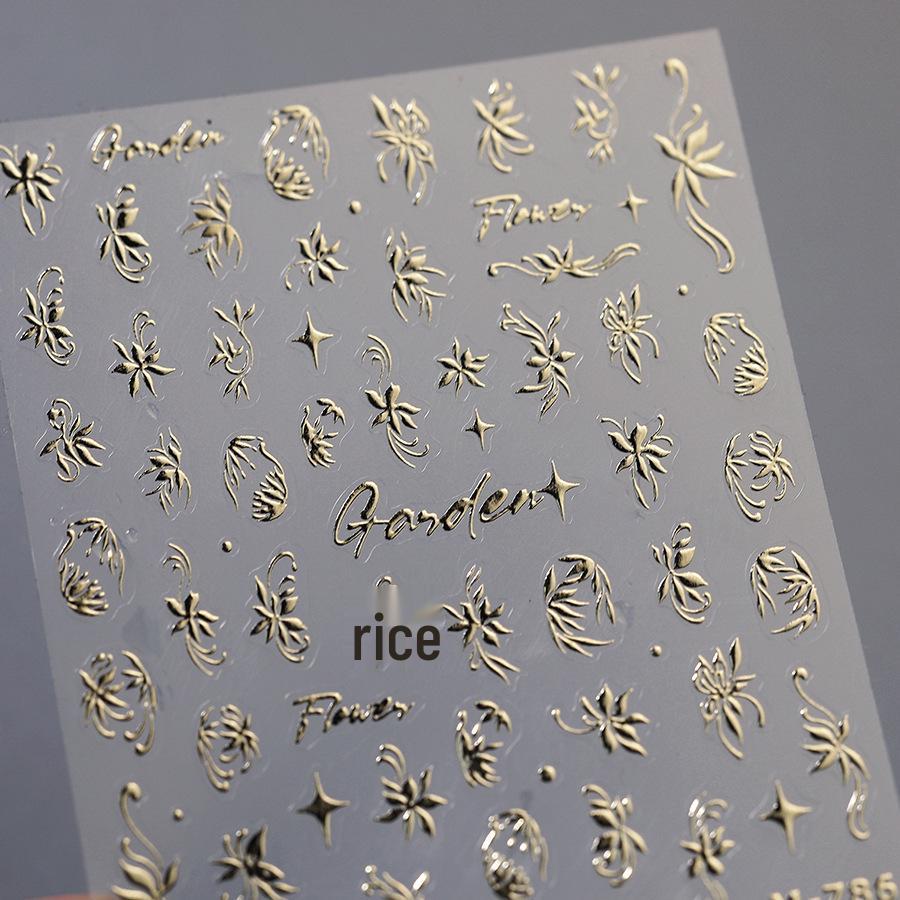 Garden
Flower
Garden
rice
Flower
N-786